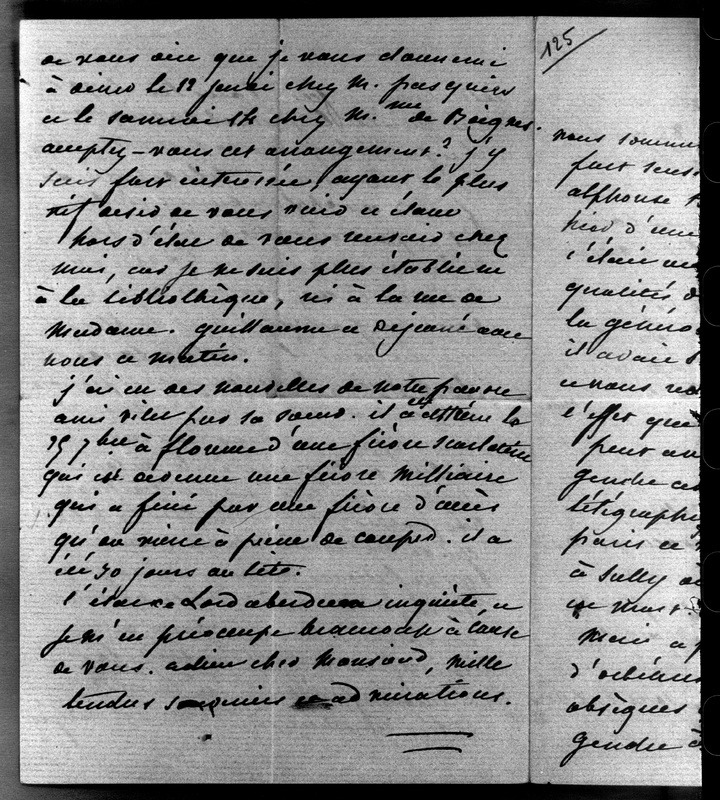 de vous dire que je vous donnerai
à diner le 12 jeudi chez M. pasquier
et le samedi 14 chez M.me de Boigne.
acceptez-vous cet arrangement? j'y
suis fort intéressée, ayant le plus
vif désir de vous voir et étant
hors d'état de vous recevoir chez
moi, car je ne suis plus établie ni
à la bibliothèque, ni à la rue de
Madame. guillaume a dejeuné avec
nous ce matin.
j'ai eu des nouvelles de notre pauvre
ami par sa soeur. il a été atteint le
25 7bre à florence d'une fièvre scarlatine
qui est devenue une fièvre milliaire
qui a fini par une fièvre d'accès
qu'on vient à peine de couper. il a
été 30 jours au lit.
l'état de Lord aberdeen inquiète, et
je m'en préoccupe beaucoup à cause
de vous. adieu cher Monsieur, mille
tendres souvenirs et admirations.
125
nous somme
fort
alphonse
pied d'une
c'était
qualités d
la géné
il avait
et nous
l'effet que
peut
gendre
télégraphi
paris
à Sully
est mort.
mari a
d'orléans
obsèques
gendre à